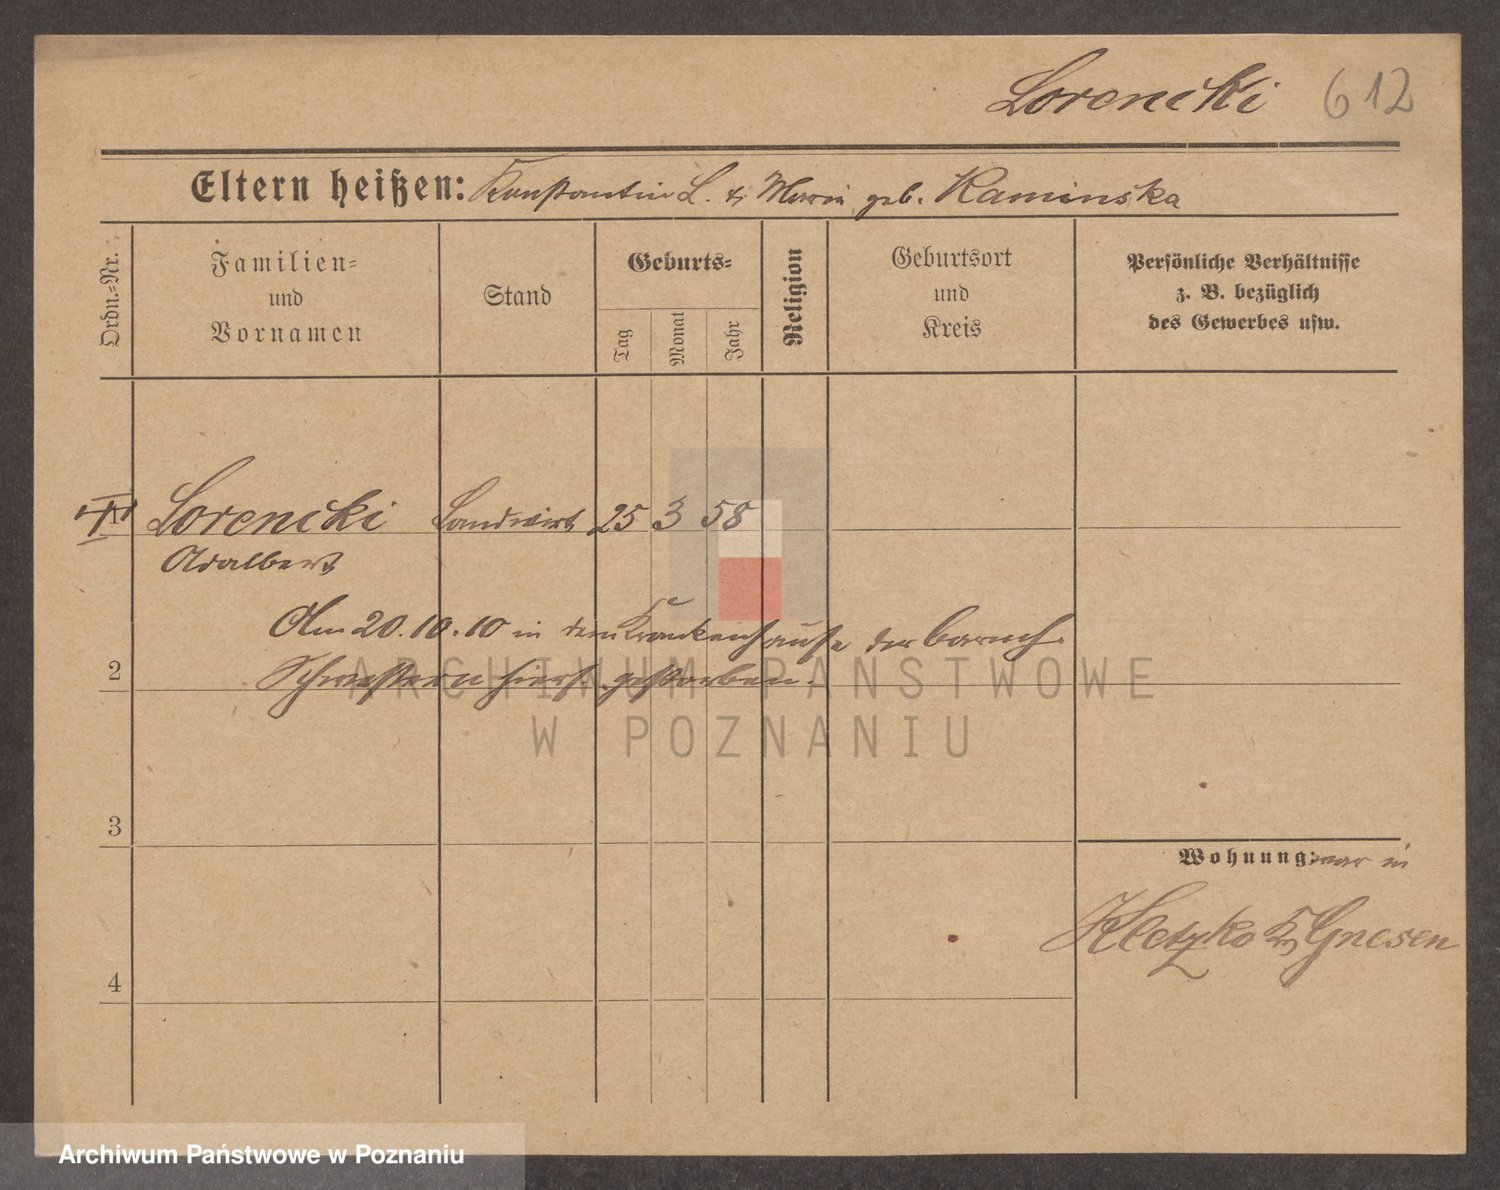 Lorencki 612
Eltern heißen: Konstantin L. & Maria geb. Kaminska
Ordn.-Nr.
Familien-
und
Vornamen
Stand
Geburts-
Tag
Monat
Jahr
Religion
Geburtsort
und
Kreis
Persönliche Verhältnisse
z. B. bezüglich
des Gewerbes usw.
Lorencki Landwirt 25 3 58
Adalbert
Am 20.10.10 in dem Krankenhause der barmh.
2 Schwestern hiers. gestorben.
ARCHIWUM PAŃSTWOWE
W POZNANIU
3
Wohnung: war in
Kletzko Kr. Gnesen
4
Archiwum Państwowe w Poznaniu